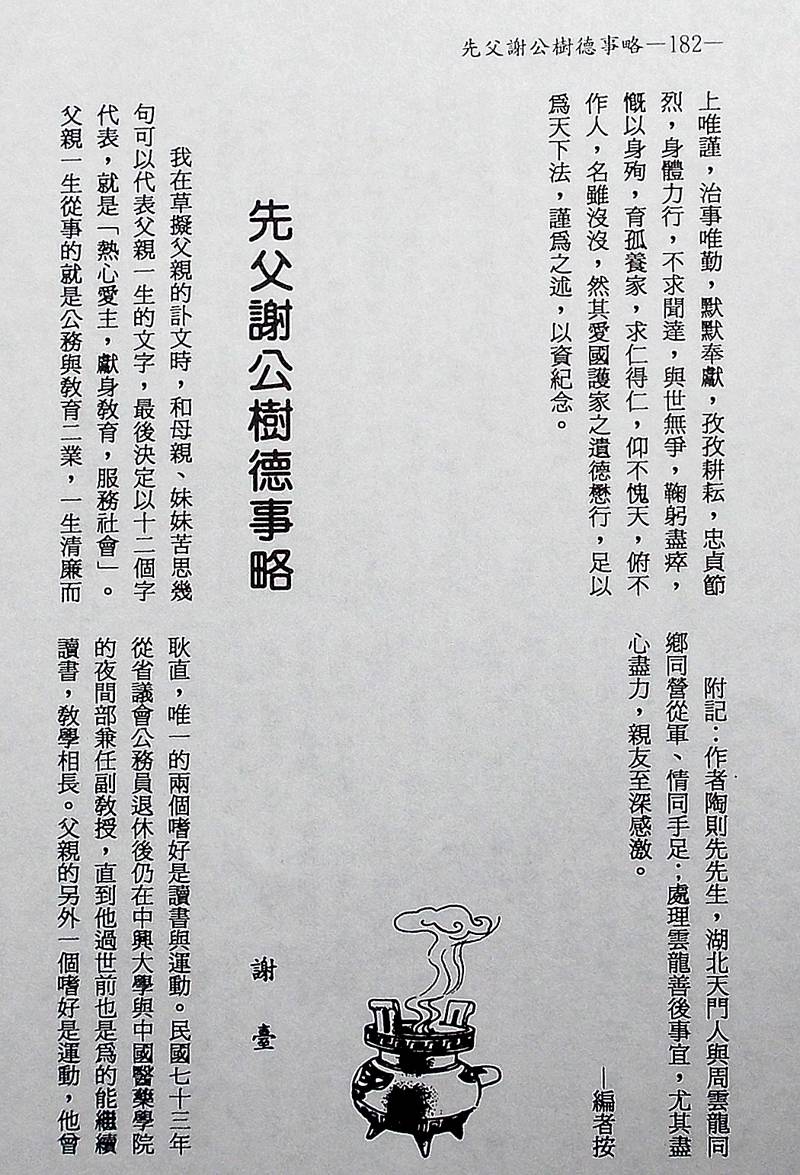 先父謝公樹德事略—182—
上唯謹，治事唯勤，默默奉獻，孜孜耕耘，忠貞節
烈，身體力行，不求聞達，與世無爭，鞠躬盡瘁，
慨以身殉，育孤養家，求仁得仁，仰不愧天，俯不
作人，名雖沒沒，然其愛國護家之遺德懋行，足以
爲天下法，謹爲之述，以資紀念。
附記：作者陶則先先生，湖北天門人與周雲龍同
鄉同營從軍、情同手足；處理雲龍善後事宜，尤其盡
心盡力，親友至深感激。
—編者按
先父謝公樹德事略
謝臺
我在草擬父親的訃文時，和母親、妹妹苦思幾
句可以代表父親一生的文字，最後決定以十二個字
代表，就是「熱心愛主，獻身敎育，服務社會」。
父親一生從事的就是公務與敎育二業，一生清廉而
耿直，唯一的兩個嗜好是讀書與運動。民國七十三年
從省議會公務員退休後仍在中興大學與中國醫藥學院
的夜間部兼任副敎授，直到他過世前也是爲的能繼續
讀書，敎學相長。父親的另外一個嗜好是運動，他曾